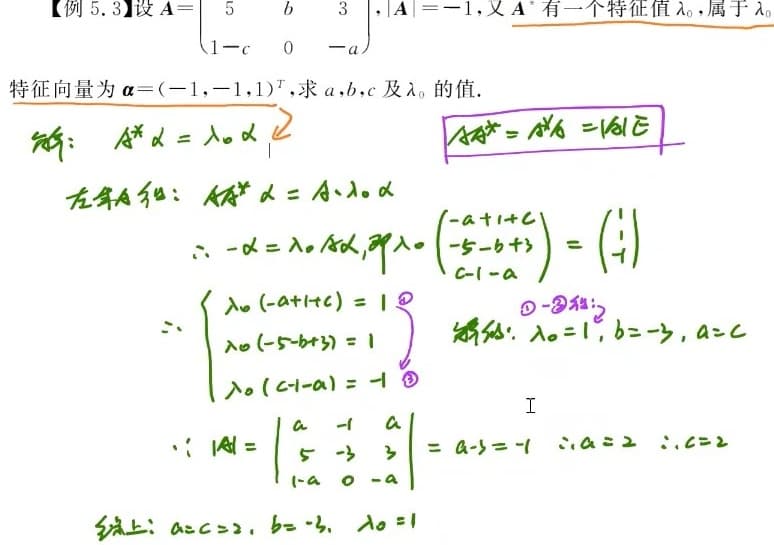 【例 5.3】设 A= 5 b 3 ,|A|=-1,又 A* 有一个特征值 λ₀,属于 λ₀
1-c 0 -a
特征向量为 α=(-1,-1,1)ᵀ,求 a,b,c 及 λ₀ 的值.
解: A*α = λ₀α
AA* = A*A = |A|E
左乘A得: AA*α = A·λ₀α
∴ -α = λ₀Aα,即λ₀ (-a+1+c -5-b+3 c-1-a) = (1 1 -1)
∴ λ₀(-a+1+c) = 1 ①
λ₀(-5-b+3) = 1
λ₀(c-1-a) = -1 ③
①-③得:
解得: λ₀=1, b=-3, a=c
∵ |A| = | a -1 a
5 -3 3
1-a 0 -a | = a-3=-1 ∴a=2 ∴c=2
综上: a=c=2, b=-3, λ₀=1